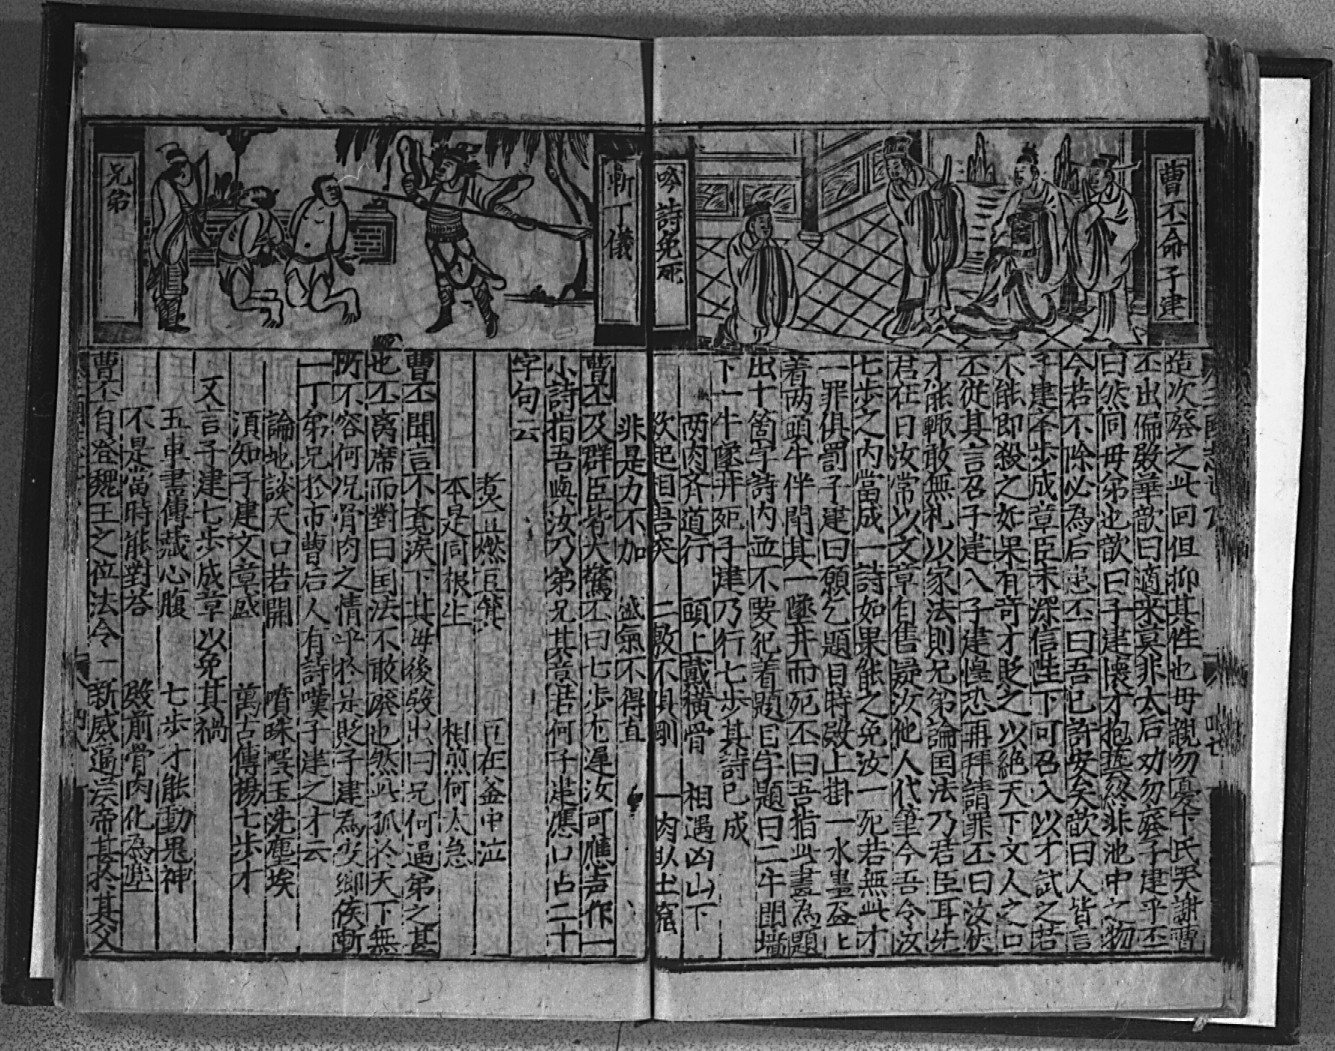 曹丕命子建
吟詩免死
造次發之此回但抑其性也母親勿憂卞氏哭謝曹
丕出偏殿華歆曰適來莫非太后劝勿廢子建乎丕
曰然同母弟也歆曰子建懷才抱藝終非池中之物
今若不除必為后患丕曰吾已許母矣歆曰人皆言
子建卒步成章臣未深信陛下可召入以才試之若
不能即殺之如果有奇才貶之以絕天下文人之口
丕從其言召子建入子建惶恐再拜請罪丕曰汝恃
才能輒敢無礼以家法則兄弟論囯法乃君臣耳先
君在日汝常以文章自售疑汝他人代筆今吾令汝
七步之內當成一詩如果能之免汝一死若無此才
一罪俱罰子建曰願乞題目時殿上掛一水墨画上
着两頭牛伴閗其一墜井而死丕曰吾指此畫為題
出十箇字詩內並不要犯着題目字題曰二牛閗墻
下一牛墜井死子建乃行七步其詩已成
两肉齐道行 頭上戴橫骨 相遇凶山下
欻起相唐突 二敵不俱剛 一肉臥土窟
非是力不加 盛氣不得直
斬丁儀
兄弟
曹丕及群臣皆大驚丕曰七步尤遲汝可應声作一
小詩指吾與汝乃弟兄其意若何子建應口占二十
字句云
煑豆燃豆箕 豆在釜中泣
本是同根生 相煎何太急
曹丕聞言不竟淚下其母後發出曰兄何逼弟之甚
也丕离席而對曰囯法不敢廢也然此孤於天下無
所不容何况骨肉之情乎於是貶子建為安鄉侯斬
一丁弟兄於市曹后人有詩嘆子建之才云
論地談天口若開 噴珠噀玉洗塵埃
須知子建文章盛 萬古傳揚七步才
又言子建七步成章以免其禍
五車書傳藏心腹 七步才能動鬼神
不是當時能對荅 殿前骨肉化為塵
曹丕自登魏王之位法令一新威逼漢帝甚於其父